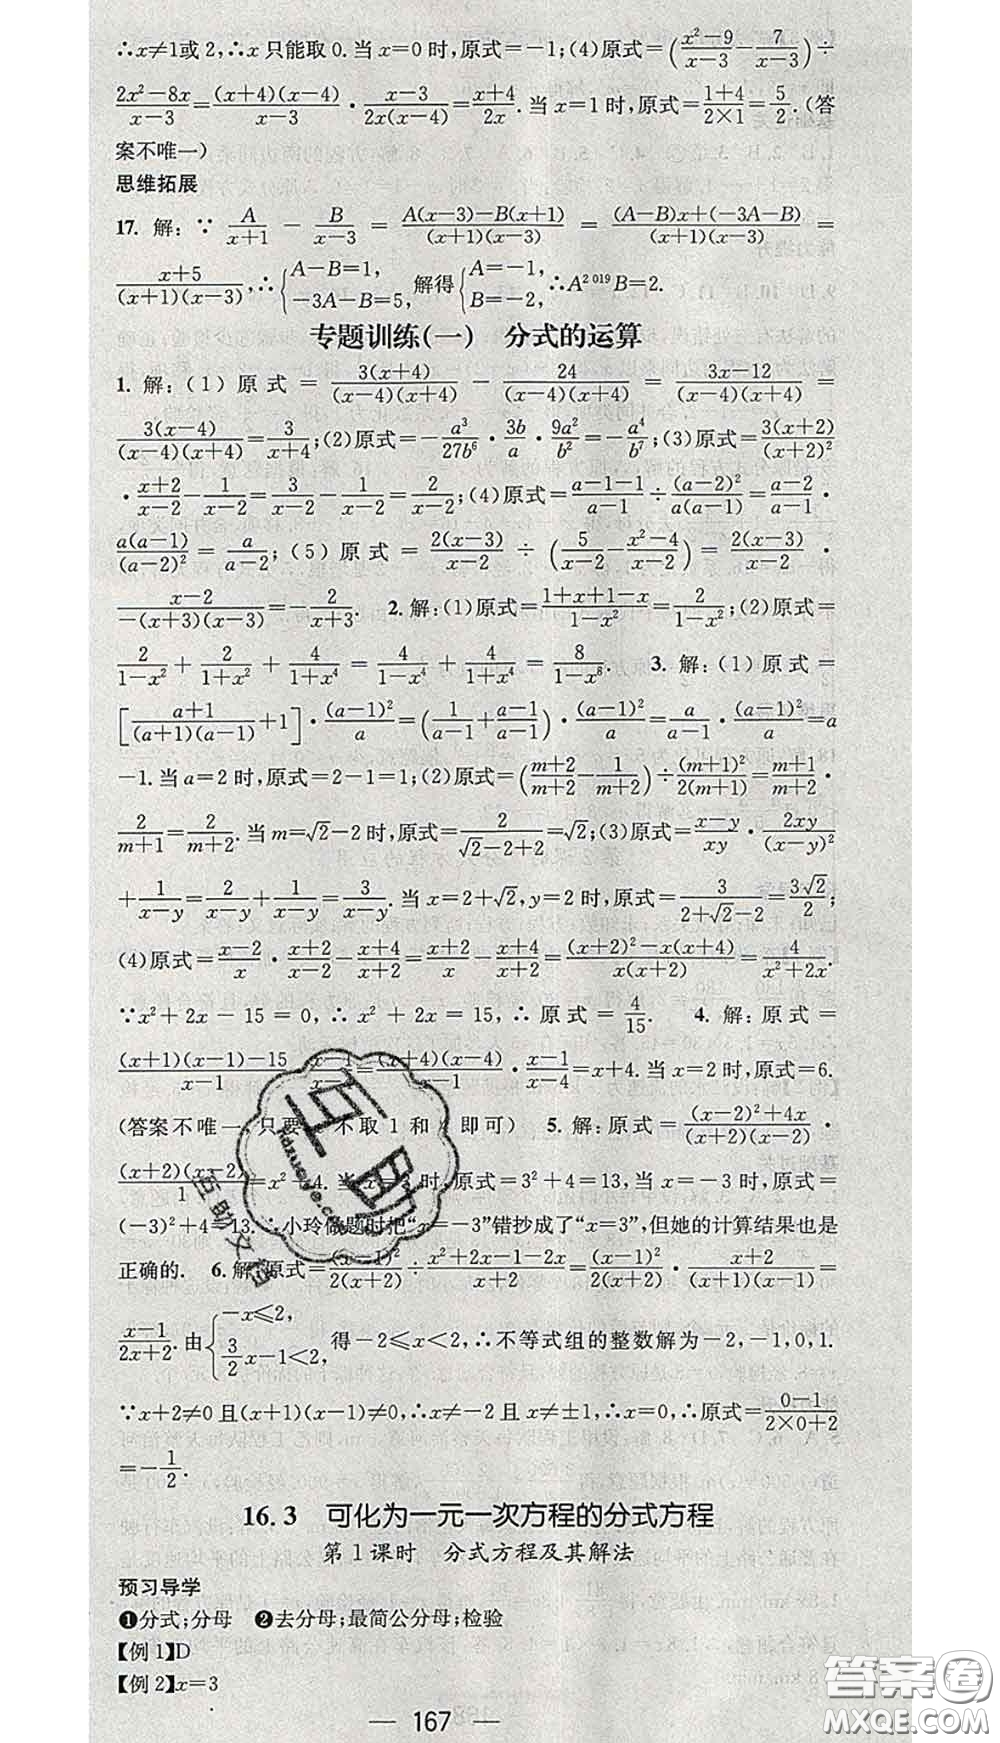 ∴x≠1或2,∴x只能取0.当x=0时,原式=-1;(4)原式=((x²-9)/(x-3)-7/(x-3))÷
(2x²-8x)/(x-3)=((x+4)(x-4))/(x-3)·(x-3)/(2x(x-4))=(x+4)/(2x).当x=1时,原式=(1+4)/(2×1)=5/2.(答
案不唯一)
思维拓展
17. 解:∵A/(x+1)-B/(x-3)=(A(x-3)-B(x+1))/((x+1)(x-3))=((A-B)x+(-3A-B))/((x+1)(x-3))=
(x+5)/((x+1)(x-3)),∴{A-B=1, -3A-B=5,解得{A=-1, B=-2,∴A²⁰¹⁹B=2.
专题训练(一) 分式的运算
1. 解:(1)原式=3(x+4)/((x-4)(x+4))-24/((x-4)(x+4))=(3x-12)/((x-4)(x+4))=
3(x-4)/((x-4)(x+4))=3/(x+4);(2)原式=-a³/(27b⁶)·3b/a·9a²/b²=-a⁴/b⁷;(3)原式=3(x+2)/(x+2)²
·(x+2)/(x-2)-1/(x-2)=3/(x-2)-1/(x-2)=2/(x-2);(4)原式=(a-1-1)/(a-1)÷(a-2)²/(a(a-1))=(a-2)/(a-1)·
a(a-1)/(a-2)²=a/(a-2);(5)原式=2(x-3)/(x-2)÷(5/(x-2)-(x²-4)/(x-2))=2(x-3)/(x-2)·
(x-2)/(-(x+3)(x-3))=-2/(x+3). 2. 解:(1)原式=(1+x+1-x)/(1-x²)=2/(1-x²);(2)原式=
2/(1-x²)+2/(1+x²)+4/(1+x⁴)=4/(1-x⁴)+4/(1+x⁴)=8/(1-x⁸). 3. 解:(1)原式=
[(a+1)/((a+1)(a-1))+1]·(a-1)²/a=(1/(a-1)+(a-1)/(a-1))·(a-1)²/a=a/(a-1)·(a-1)²/a=a
-1.当a=2时,原式=2-1=1;(2)原式=((m+2)/(m+2)-1/(m+2))÷(m+1)²/(2(m+1))=(m+1)/(m+2)·
2/(m+1)=2/(m+2).当m=√2-2时,原式=2/(√2-2+2)=√2;(3)原式=(x-y)/(xy)·2xy/(x-y)²
+1/(x-y)=2/(x-y)+1/(x-y)=3/(x-y).当x=2+√2,y=2时,原式=3/(2+√2-2)=3√2/2;
(4)原式=(x-2)/x·(x+2)/(x-2)-(x+2)/(x+4)=(x+2)/x-(x+4)/(x+2)=((x+2)²-x(x+4))/(x(x+2))=4/(x²+2x).
∵x²+2x-15=0,∴x²+2x=15,∴原式=4/15. 4. 解:原式=
((x+1)(x-1)-15)/(x-1)·(x-1)/(x-4)=((x+4)(x-4))/(x-1)·(x-1)/(x-4)=x+4.当x=2时,原式=6.
(答案不唯一,只要 不取1和 即可) 5. 解:原式=((x-2)²+4x)/((x+2)(x-2))·
((x+2)(x-2))/1=x²+4.当x= 时,原式=3²+4=13,当x=-3时,原式=
(-3)²+4=13.∴小玲做题时把“x=-3”错抄成了“x=3”,但她的计算结果也是
正确的. 6. 解:原式=(x-1)²/(2(x+2))÷(x²+2x-1-2x)/(x+2)=(x-1)²/(2(x+2))·(x+2)/((x+1)(x-1))=
(x-1)/(2x+2).由{-x≤2, (3/2)x-1<2,得-2≤x<2,∴不等式组的整数解为-2,-1,0,1.
∵x+2≠0且(x+1)(x-1)≠0,∴x≠-2且x≠±1,∴x=0,∴原式=(0-1)/(2×0+2)
=-1/2.
16.3 可化为一元一次方程的分式方程
第1课时 分式方程及其解法
预习导学
❶分式;分母 ❷去分母;最简公分母;检验
【例1】D
【例2】x=3
— 167 —
互助
互助文
答案圈
MXQE.COM